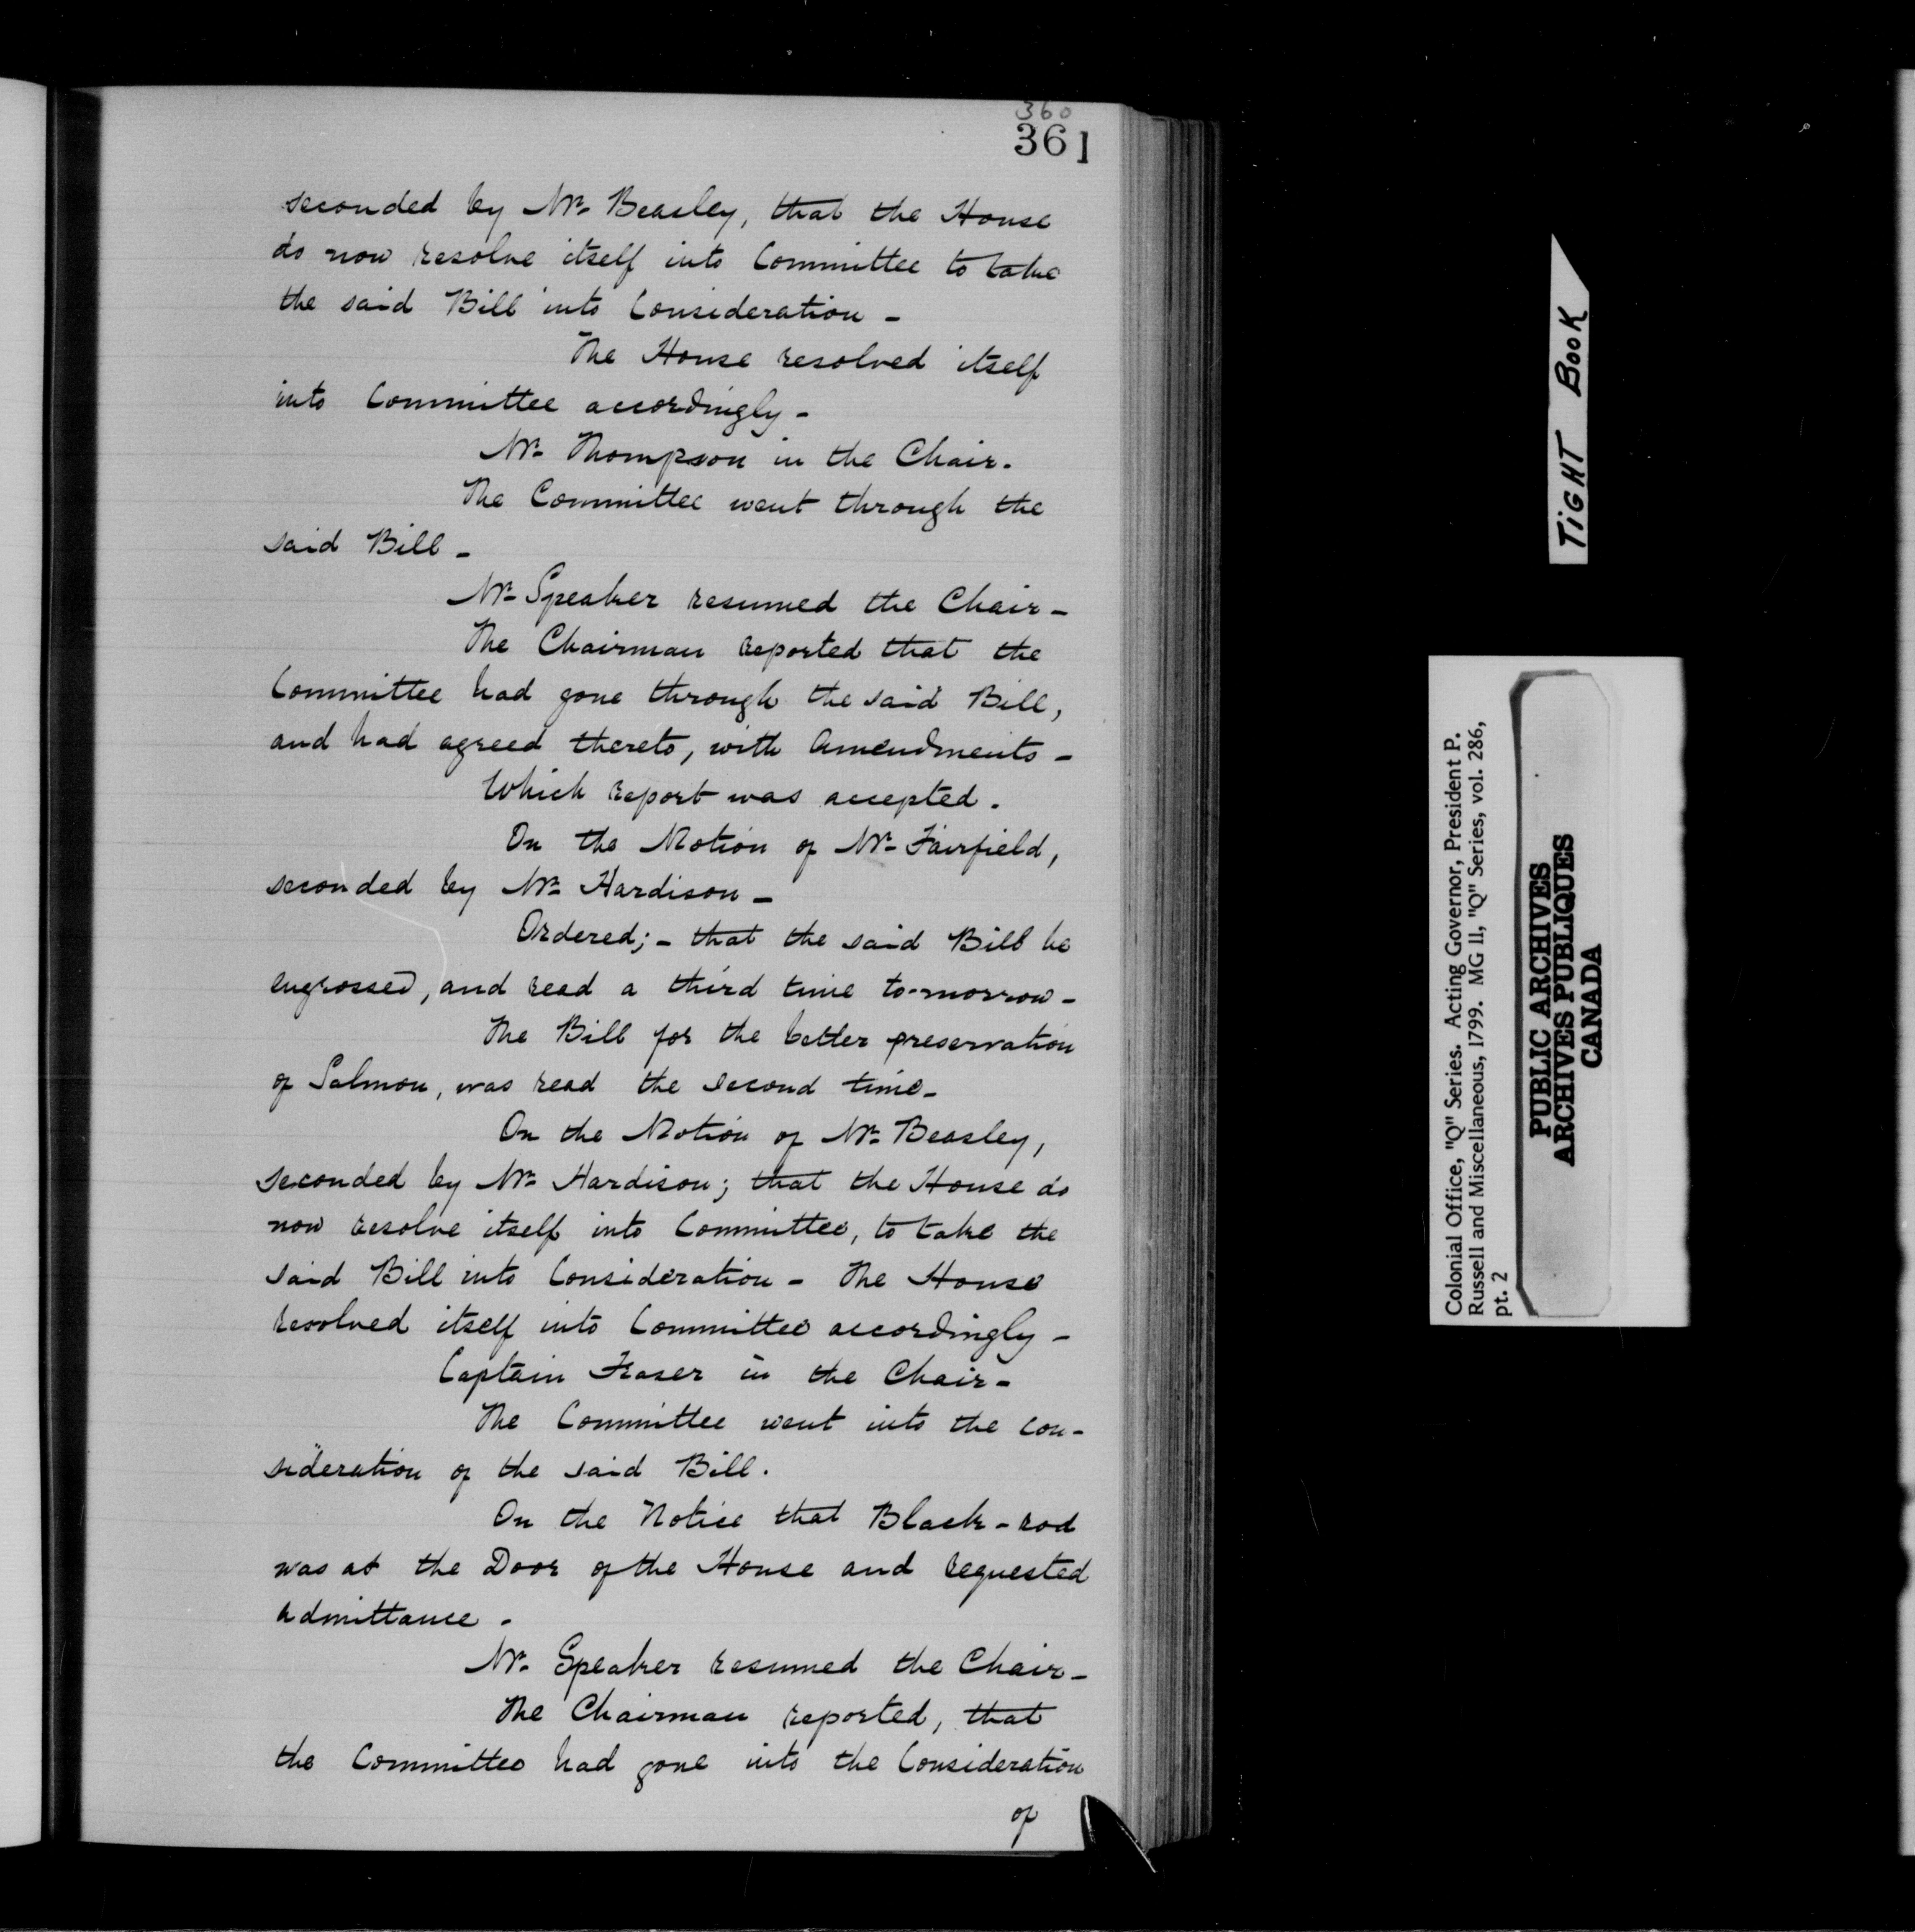 360
361
seconded by Mr. Beasley, that the House
do now resolve itself into Committee to take
the said Bill into Consideration -
The House resolved itself
into Committee accordingly -
Mr. Thompson in the Chair.
The Committee went through the
said Bill -
Mr. Speaker resumed the Chair -
The Chairman reported that the
Committee had gone through the said Bill,
and had agreed thereto, with Amendments -
Which report was accepted.
On the Motion of Mr. Fairfield,
seconded by Mr. Hardison -
Ordered; - that the said Bill be
engrossed, and read a third time to-morrow -
The Bill for the better preservation
of Salmon, was read the second time -
On the Motion of Mr. Beasley,
seconded by Mr. Hardison; that the House do
now resolve itself into Committee, to take the
said Bill into Consideration - The House
resolved itself into Committee accordingly -
Captain Fraser in the Chair -
The Committee went into the con-
"sideration of the said Bill.
On the Notice that Black-rod
was at the Door of the House and requested
admittance -
Mr. Speaker resumed the Chair -
The Chairman reported, that
the Committee had gone into the Consideration
of
TIGHT BOOK
Colonial Office, "Q" Series. Acting Governor, President P.
Russell and Miscellaneous, 1799. MG 11, "Q" Series, vol. 286,
pt. 2
PUBLIC ARCHIVES
ARCHIVES PUBLIQUES
CANADA